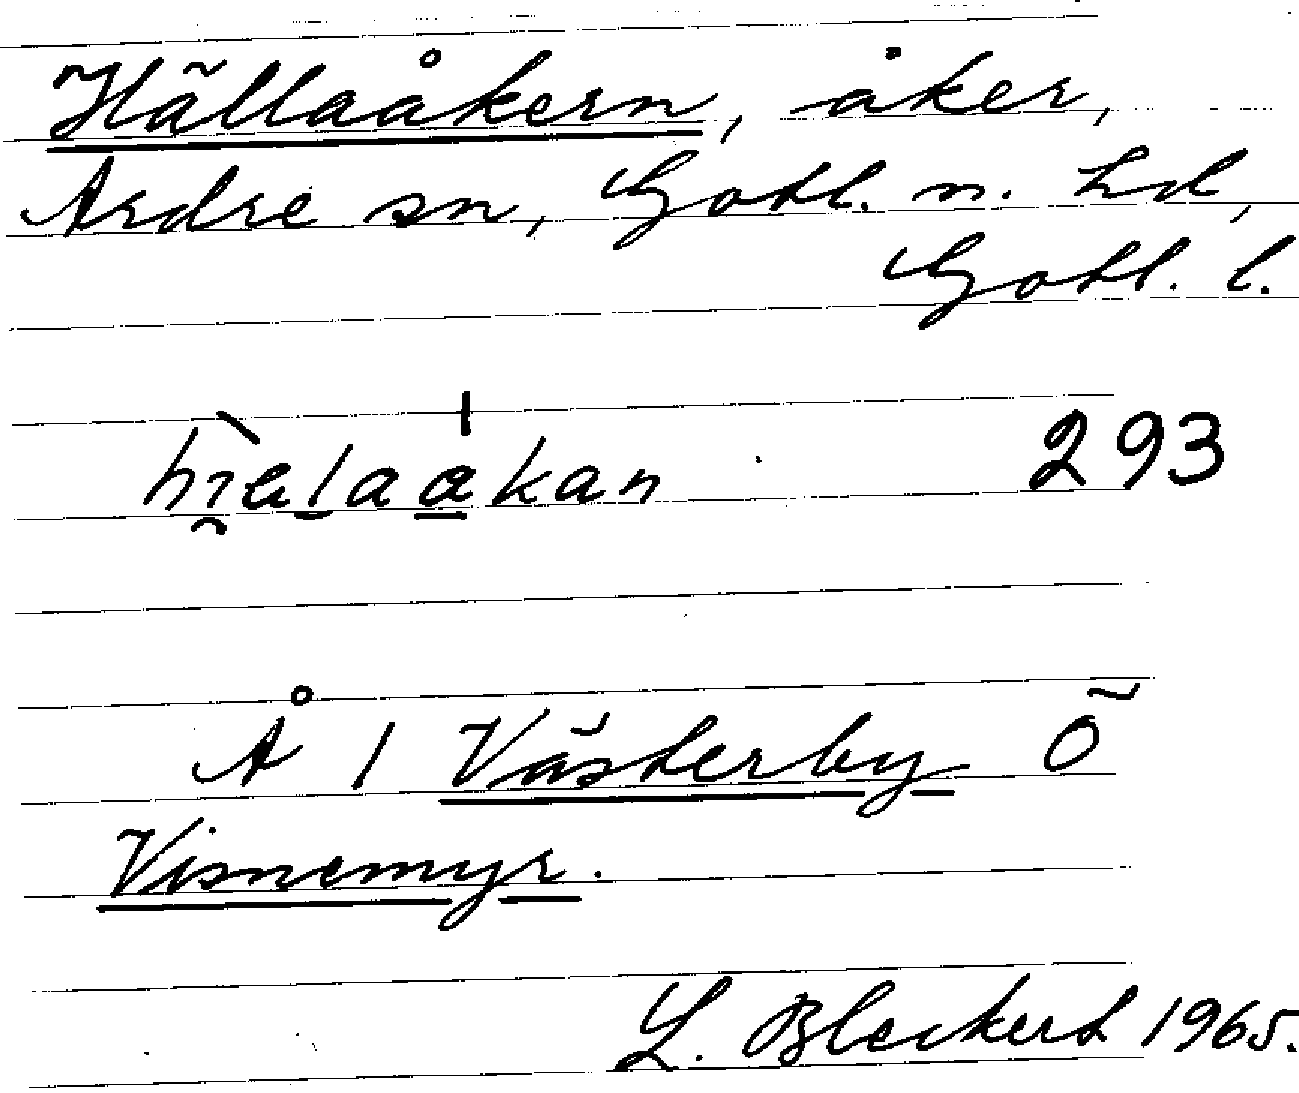 Hällaåkern, åker,
Ardre sn, Gotl. n. hd,
Gotl. l.
293
Å 1 Västerby Ö
Visnemyr.
L. Bleckert 1965.